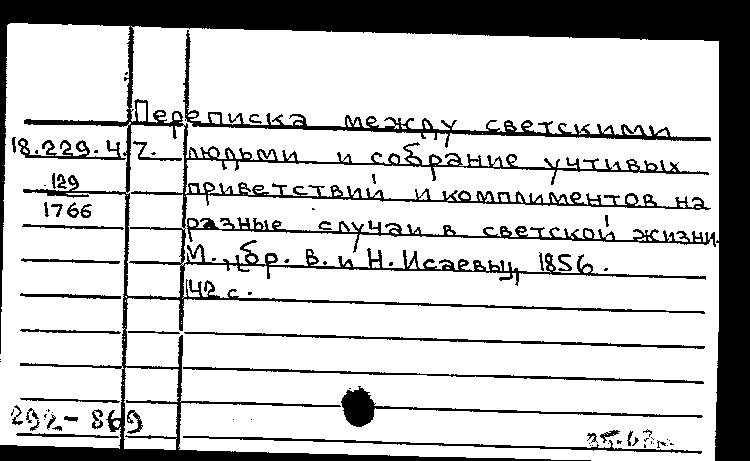 Переписка между светскими
18.229.4.7. людьми и собрание учтивых
129 приветствий и комплиментов на
1766 разные случаи в светской жизни.
М., „бр. В. и Н. Исаевы", 1856.
142 с.
292-869